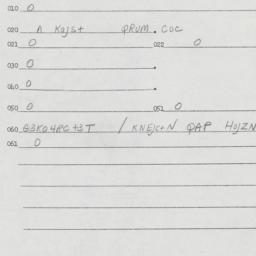 010 0
020 A KOJS+ QRUM. COC
021 0 022 0
030 0
040 0
050 0 051 0
060 G3KO4RC+3T / KNEJC+N QAP HOJZN
061 0